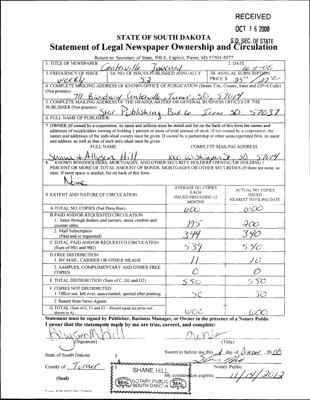 RECEIVED
OCT 16 2008
S.D. SEC. OF STATE
STATE OF SOUTH DAKOTA
Statement of Legal Newspaper Ownership and Circulation
Return to: Secretary of State, 500 E. Capitol, Pierre, SD 57501-5077
1. TITLE OF NEWSPAPER Centerville Journal
2. DATE
3. FREQUENCY OF ISSUE
3A. NO. OF ISSUES PUBLISHED ANNUALLY
3B. ANNUAL SUBSCRIPTION
weekly 52 PRICE $
4. COMPLETE MAILING ADDRESS OF KNOWN OFFICE OF PUBLICATION (Street, City, County, State and ZIP+4 Code)
(Not printers)
Broadway Centerville, Turner, SD 57014
5. COMPLETE MAILING ADDRESS OF THE HEADQUARTERS OR GENERAL BUSINESS OFFICES OF THE
PUBLISHER (Not printers) Star Publishing Irene SD 57037
6. FULL NAME OF PUBLISHER:
7. OWNER (If owned by a corporation, its name and address must be stated and also on the back of this form the names and
addresses of stockholders owning or holding 1 percent or more of total amount of stock. If not owned by a corporation, the
names and addresses of the individual owners must be given. If owned by a partnership or other unincorporated firm, its name
and address, as well as that of each individual must be given.
FULL NAME COMPLETE MAILING ADDRESS
Shane & Allyson Hill SD 57014
8. KNOWN BONDHOLDERS, MORTGAGES, AND OTHER SECURITY HOLDERS OWNING OR HOLDING 1
PERCENT OR MORE OF TOTAL AMOUNT OF BONDS, MORTGAGES OR OTHER SECURITIES (If there are none, so
state. If more space is needed, list on back of this form).
None
9. EXTENT AND NATURE OF CIRCULATION
AVERAGE NO. COPIES
EACH
ISSUED PRECEDING 12
MONTHS
ACTUAL NO. COPIES
ISSUED
NEAREST TO FILING DATE
A. TOTAL NO. COPIES (Net Press Run) 600 600
B. PAID AND/OR REQUESTED CIRCULATION
1. Sales through dealers and carriers, street vendors and
counter sales. 195 200
2. Mail Subscription
(Paid and/or requested) 344 340
C. TOTAL PAID AND/OR REQUESTED CIRCULATION
(Sum of 9B1 and 9B2) 539 540
D. FREE DISTRIBUTION
1. BY MAIL, CARRIER OR OTHER MEANS 11 10
2. SAMPLES, COMPLIMENTARY AND OTHER FREE
COPIES 0 0
E. TOTAL DISTRIBUTION (Sum of C, D1 and D2) 550 550
F. COPIES NOT DISTRIBUTED
1. Office use, left over, unaccounted, spoiled after printing 50 50
2. Return from News Agents
G. TOTAL (Sum of E, F1 and F2 - Should equal net press run
shown in A) 600 600
Statement must be signed by Publisher, Business Manager, or Owner in the presence of a Notary Public
I swear that the statements made by me are true, correct, and complete:
Allyson Hill owner
(Signature) (Title)
State of South Dakota Sworn to before me this day of October, 2008
County of Turner Notary Public
(Seal) SHANE HILL My commission expires: 11/14/2012
SEAL NOTARY PUBLIC SOUTH DAKOTA SEAL